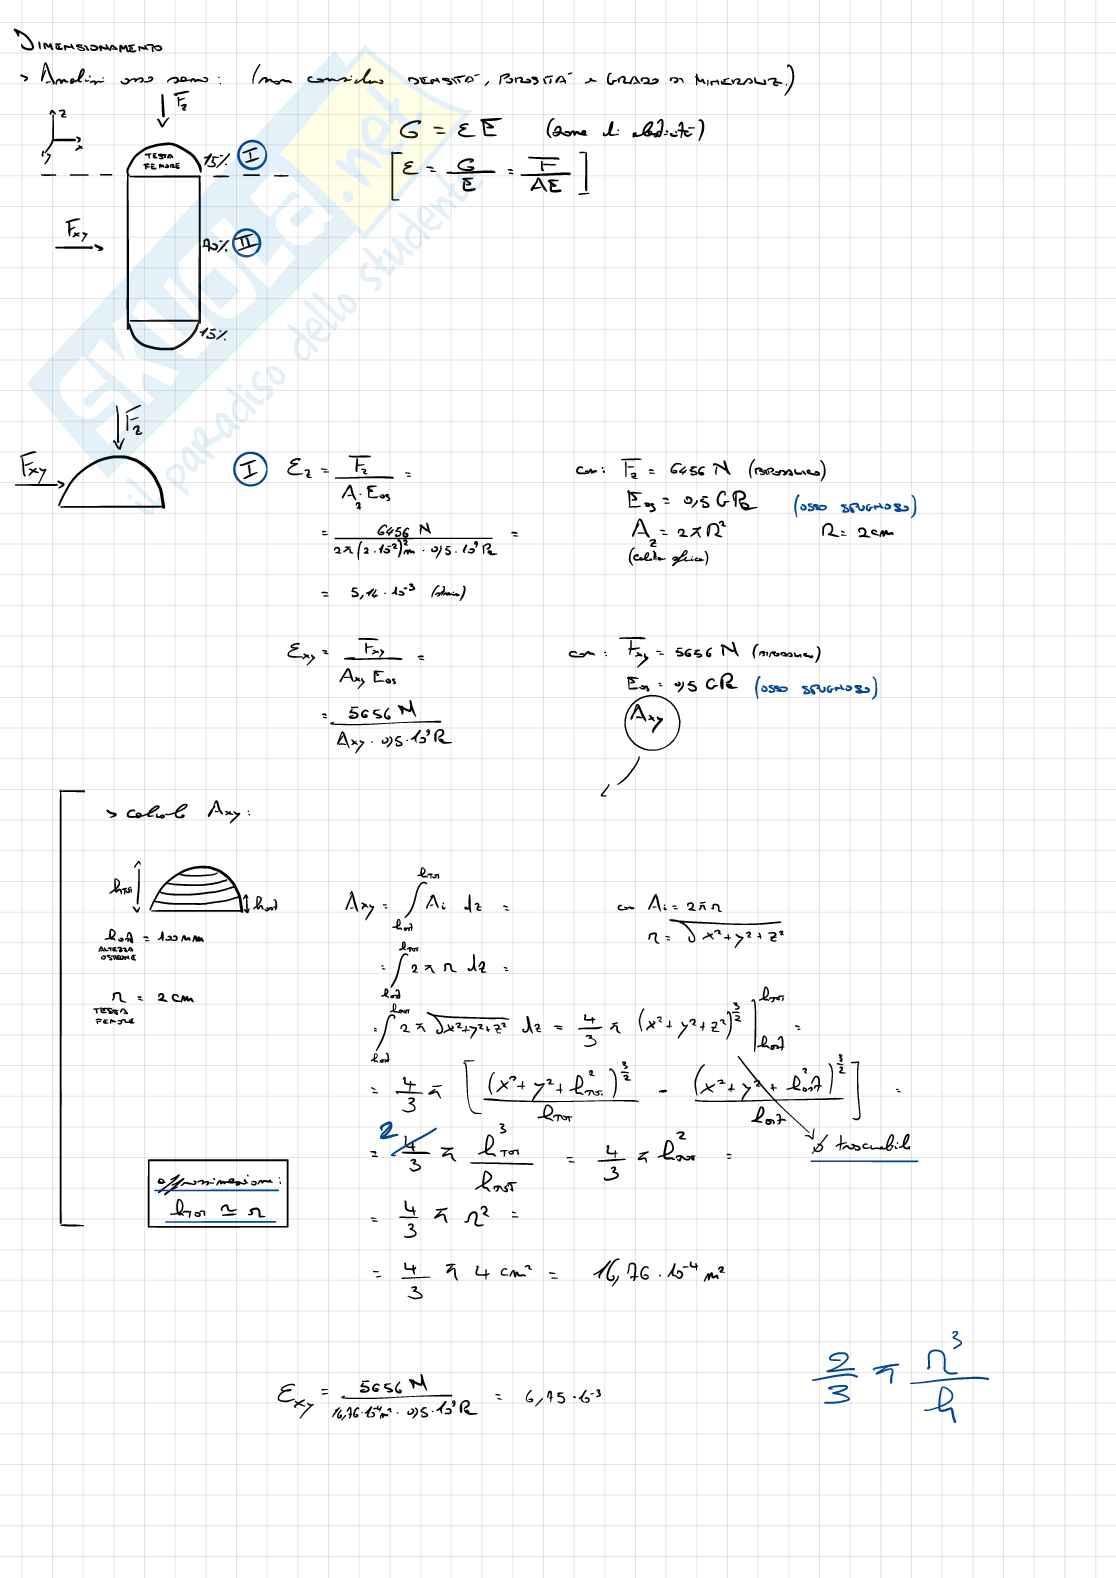 DIMENSIONAMENTO
> Analisi osso sano: (non considero DENSITÀ, POROSITÀ e GRADO DI MINERALIZ.)
F_z
z
x
y
TESTA FEMORE
15% I
F_xy
70% II
15%
G = ε E (zone di elasticità)
[ε = G/E = F/AE]
SKUOLA.net
il paradiso dello studente
F_z
F_xy
I ε_z = F_z / (A_z · E_os) =
= 6456 N / (2π(2·10⁻²)² m² · 0,5·10⁹ Pa) =
= 5,14 · 10⁻³ (strain)
con: F_z = 6456 N (IPOSSALICO)
E_os = 0,5 GPa (OSSO SPUGNOSO)
A_z = 2πR² R = 2cm
(calotta sferica)
ε_xy = F_xy / (A_xy E_os) =
= 5656 N / (A_xy · 0,5·10⁹ Pa)
con: F_xy = 5656 N
E_os = 0,5 GPa (OSSO SPUGNOSO)
A_xy
> calcolo A_xy:
h_TOT
h_ost
h_ost = 100 mm
ALTEZZA OSTEONE
r = 2 cm
TESTA FEMORE
A_xy = ∫_{h_ost}^{h_TOT} A_i dz =
con A_i = 2πr
r = √(x²+y²+z²)
= ∫_{h_ost}^{h_TOT} 2πr dz =
= ∫_{h_ost}^{h_TOT} 2π √(x²+y²+z²) dz = 4/3 π (x²+y²+z²)^{3/2} |_{h_ost}^{h_TOT} =
= 4/3 π [(x²+y²+h²_TOT)^{3/2} / h_TOT - (x²+y²+h²_ost)^{3/2} / h_ost] =
2
= 4/3 π h³_TOT / h_TOT = 4/3 π h²_TOT =
è trascurabile
approssimazione:
h_TOT ≃ r
= 4/3 π r² =
= 4/3 π 4 cm² = 16,76 · 10⁻⁴ m²
ε_xy = 5656 N / (16,76·10⁻⁴ m² · 0,5·10⁹ Pa) = 6,75·10⁻³
2/3 π r³/h